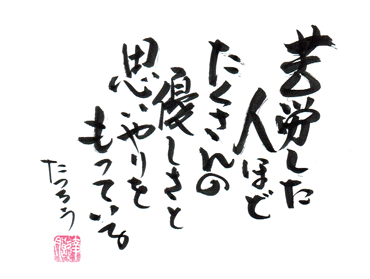 苦労した
人ほど
たくさんの
優しさと
思いやりを
もっている
たつろう